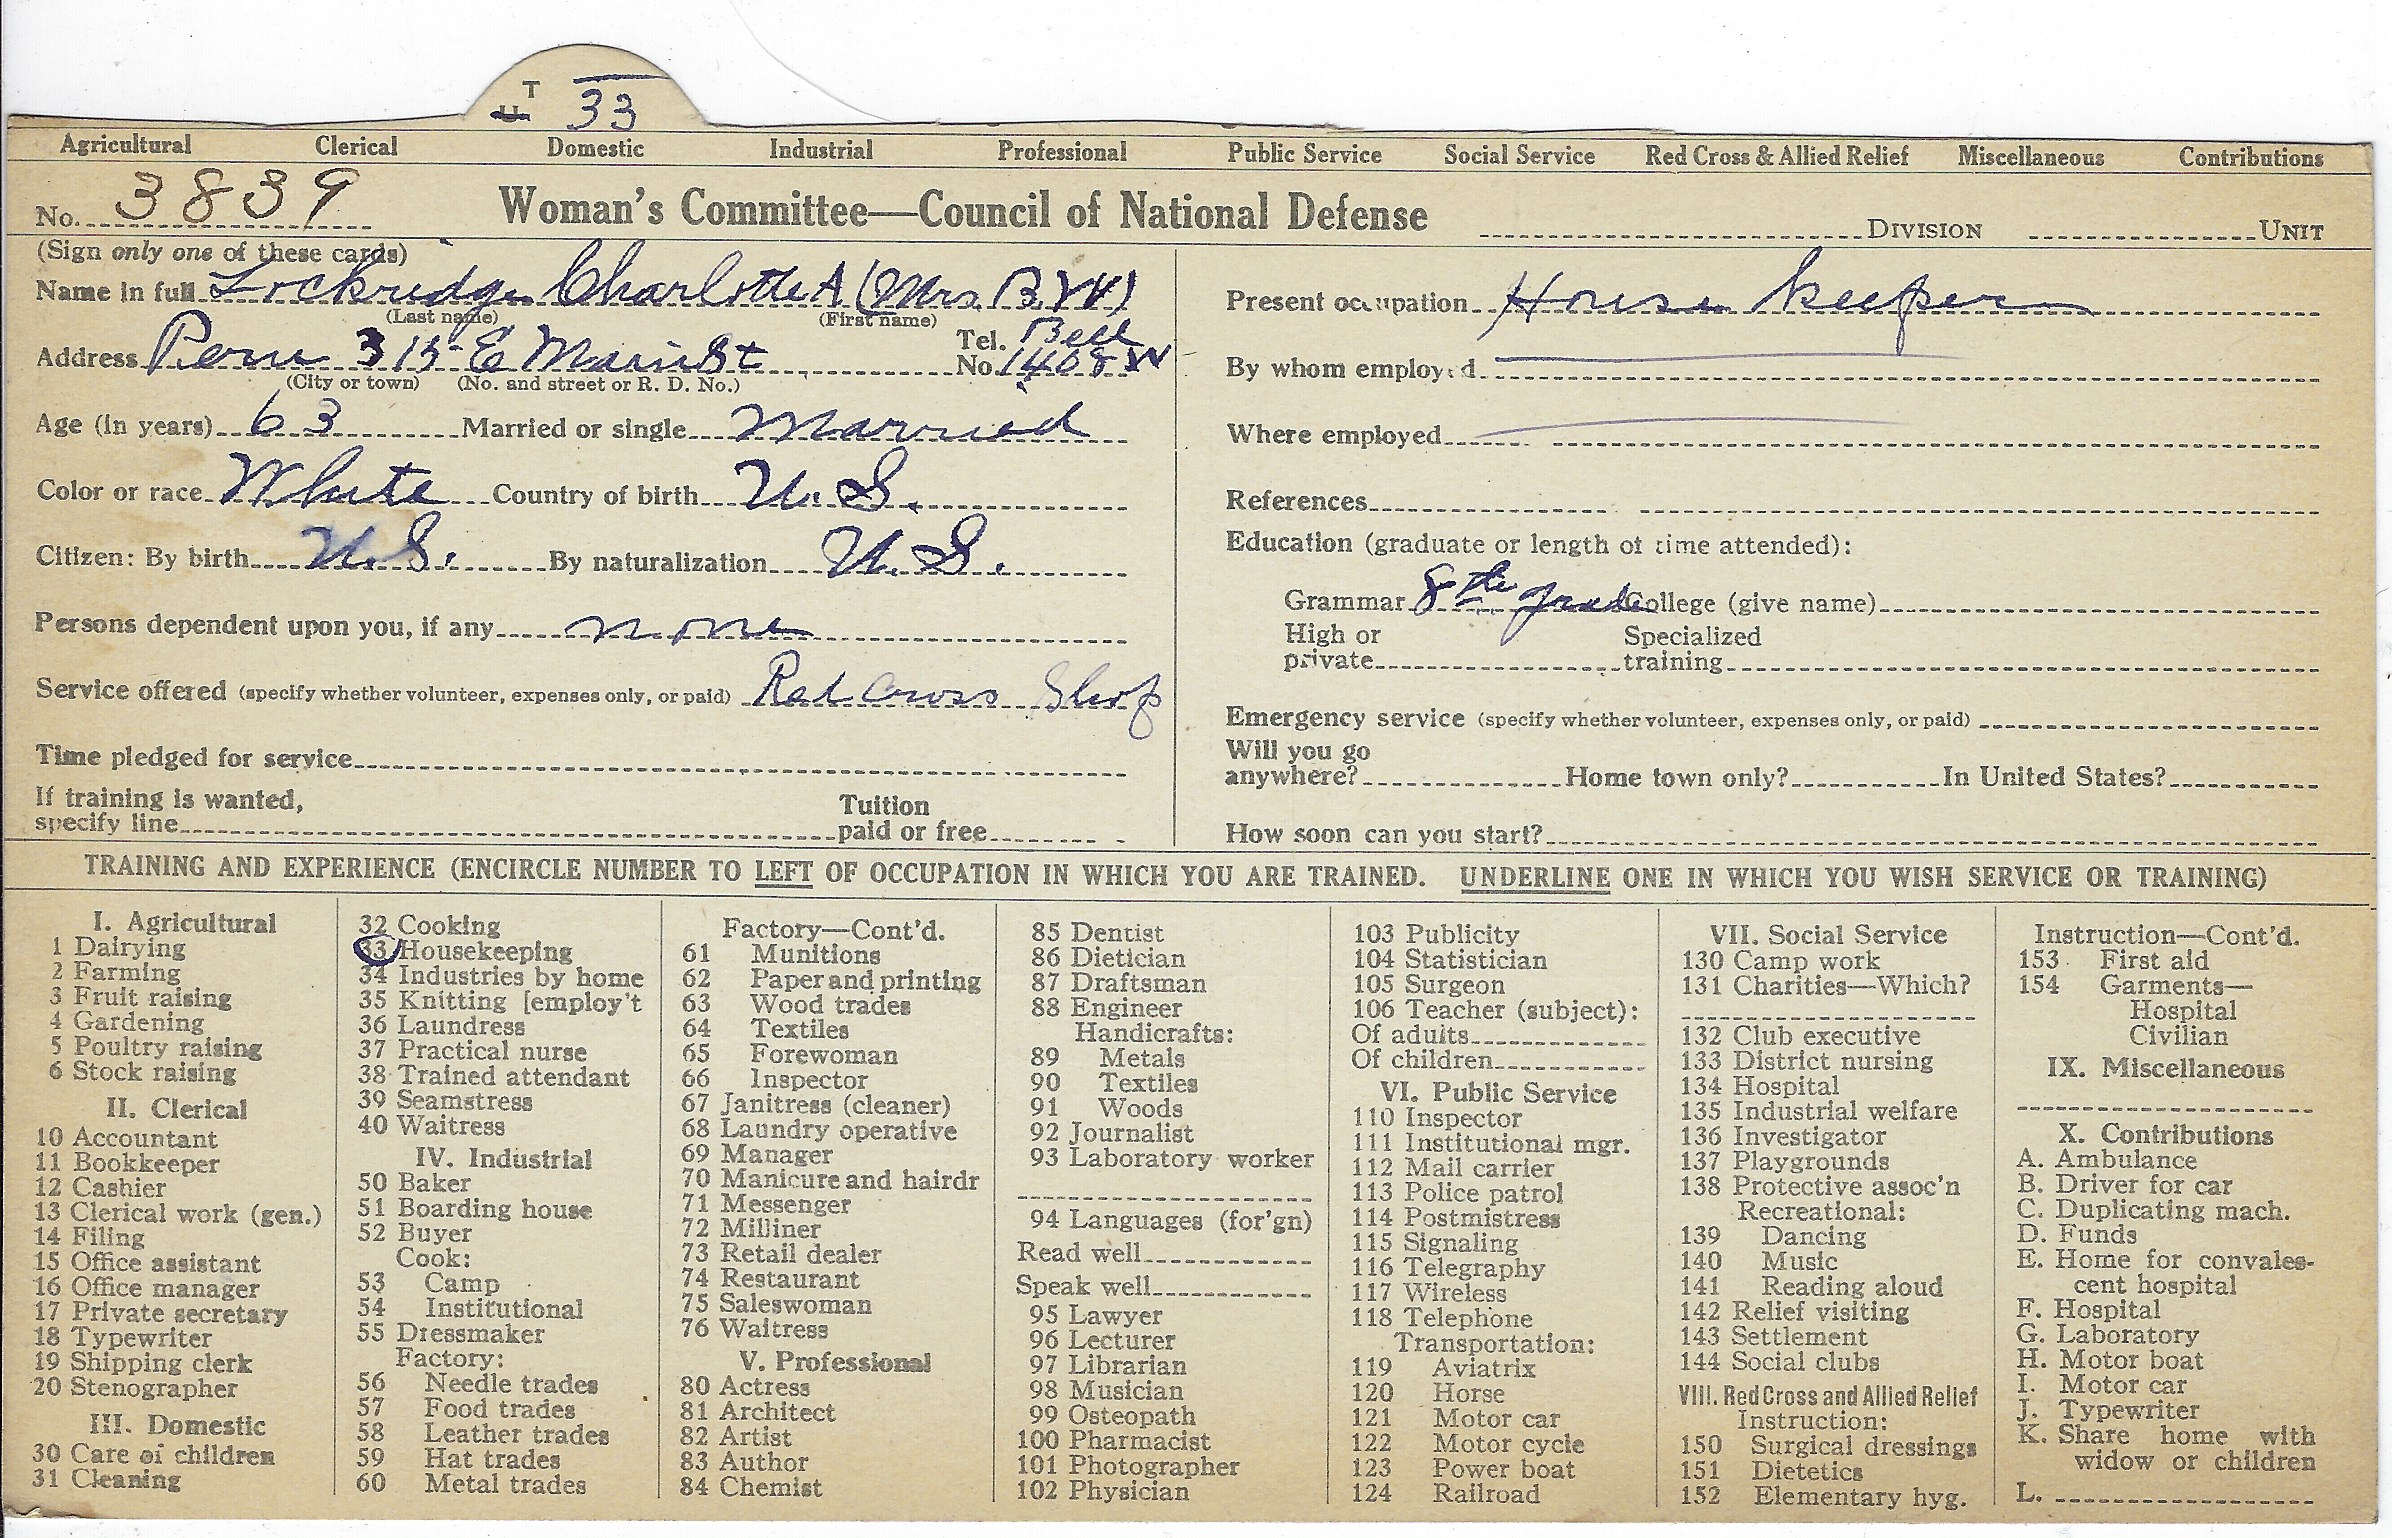 T
H 33
Agricultural Clerical Domestic Industrial Professional Public Service Social Service Red Cross & Allied Relief Miscellaneous Contributions
No. 3839 Woman's Committee—Council of National Defense DIVISION UNIT
(Sign only one of these cards)
Name in full Lockridge Charlotte A (Mrs. B. W)
(Last name) (First name)
Address Peru 315 E Main St Tel. No. Bell 1408 W
(City or town) (No. and street or R. D. No.)
Age (in years) 63 Married or single Married
Color or race White Country of birth U. S.
Citizen: By birth U. S. By naturalization U. S.
Persons dependent upon you, if any none
Service offered (specify whether volunteer, expenses only, or paid) Red Cross Shop
Time pledged for service
If training is wanted,
specify line Tuition paid or free
Present occupation House keeper
By whom employed
Where employed
References
Education (graduate or length of time attended):
Grammar 8th grade College (give name)
High or private Specialized training
Emergency service (specify whether volunteer, expenses only, or paid)
Will you go
anywhere? Home town only? In United States?
How soon can you start?
TRAINING AND EXPERIENCE (ENCIRCLE NUMBER TO LEFT OF OCCUPATION IN WHICH YOU ARE TRAINED. UNDERLINE ONE IN WHICH YOU WISH SERVICE OR TRAINING)
I. Agricultural
1 Dairying
2 Farming
3 Fruit raising
4 Gardening
5 Poultry raising
6 Stock raising
II. Clerical
10 Accountant
11 Bookkeeper
12 Cashier
13 Clerical work (gen.)
14 Filing
15 Office assistant
16 Office manager
17 Private secretary
18 Typewriter
19 Shipping clerk
20 Stenographer
III. Domestic
30 Care of children
31 Cleaning
32 Cooking
33 Housekeeping
34 Industries by home
35 Knitting [employ't
36 Laundress
37 Practical nurse
38 Trained attendant
39 Seamstress
40 Waitress
IV. Industrial
50 Baker
51 Boarding house
52 Buyer
Cook:
53 Camp
54 Institutional
55 Dressmaker
Factory:
56 Needle trades
57 Food trades
58 Leather trades
59 Hat trades
60 Metal trades
Factory—Cont'd.
61 Munitions
62 Paper and printing
63 Wood trades
64 Textiles
65 Forewoman
66 Inspector
67 Janitress (cleaner)
68 Laundry operative
69 Manager
70 Manicure and hairdr
71 Messenger
72 Milliner
73 Retail dealer
74 Restaurant
75 Saleswoman
76 Waitress
V. Professional
80 Actress
81 Architect
82 Artist
83 Author
84 Chemist
85 Dentist
86 Dietician
87 Draftsman
88 Engineer
Handicrafts:
89 Metals
90 Textiles
91 Woods
92 Journalist
93 Laboratory worker
94 Languages (for'gn)
Read well
Speak well
95 Lawyer
96 Lecturer
97 Librarian
98 Musician
99 Osteopath
100 Pharmacist
101 Photographer
102 Physician
103 Publicity
104 Statistician
105 Surgeon
106 Teacher (subject):
Of adults
Of children
VI. Public Service
110 Inspector
111 Institutional mgr.
112 Mail carrier
113 Police patrol
114 Postmistress
115 Signaling
116 Telegraphy
117 Wireless
118 Telephone
Transportation:
119 Aviatrix
120 Horse
121 Motor car
122 Motor cycle
123 Power boat
124 Railroad
VII. Social Service
130 Camp work
131 Charities—Which?
132 Club executive
133 District nursing
134 Hospital
135 Industrial welfare
136 Investigator
137 Playgrounds
138 Protective assoc'n
Recreational:
139 Dancing
140 Music
141 Reading aloud
142 Relief visiting
143 Settlement
144 Social clubs
VIII. Red Cross and Allied Relief
Instruction:
150 Surgical dressings
151 Dietetics
152 Elementary hyg.
Instruction—Cont'd.
153 First aid
154 Garments—
Hospital
Civilian
IX. Miscellaneous
X. Contributions
A. Ambulance
B. Driver for car
C. Duplicating mach.
D. Funds
E. Home for convales-
cent hospital
F. Hospital
G. Laboratory
H. Motor boat
I. Motor car
J. Typewriter
K. Share home with
widow or children
L.